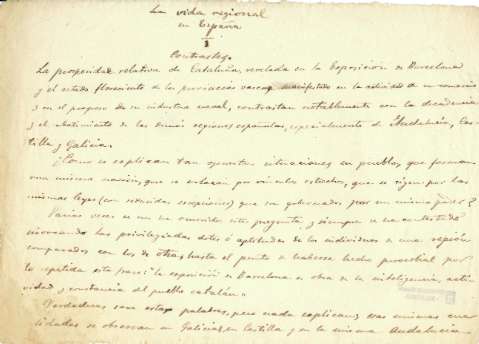 La vida regional
en España
I
Contrastes.
La prosperidad relativa de Cataluña, revelada en la Exposición de Barcelona
y el estado floreciente de las provincias vascas manifestado en la actividad de su comercio
y en el progreso de su industria naval, contrastan notablemente con la decadencia
y el abatimiento de las demás regiones españolas, especialmente de Andalucía, Cas-
tilla y Galicia.
¿Como se explican tan opuestas situaciones en pueblos, que forman
una misma nación, que se enlazan por vínculos estrechos, que se rigen por las
mismas leyes (con contadas excepciones) que son gobernados por un mismo poder?
Varias veces se me ha ocurrido esta pregunta y siempre se ha contestado
invocando las privilegiadas dotes ó aptitudes de los individuos de una región
comparados con los de otras, hasta el punto de haberse hecho proverbial por
lo repetida esta frase: "la exposición de Barcelona es obra de la inteligencia, acti-
vidad y constancia del pueblo catalán."
Verdaderas son estas palabras, pero nada explican; esas mismas cua-
lidades se observan en Galicia, en Castilla y en la misma Andalucía